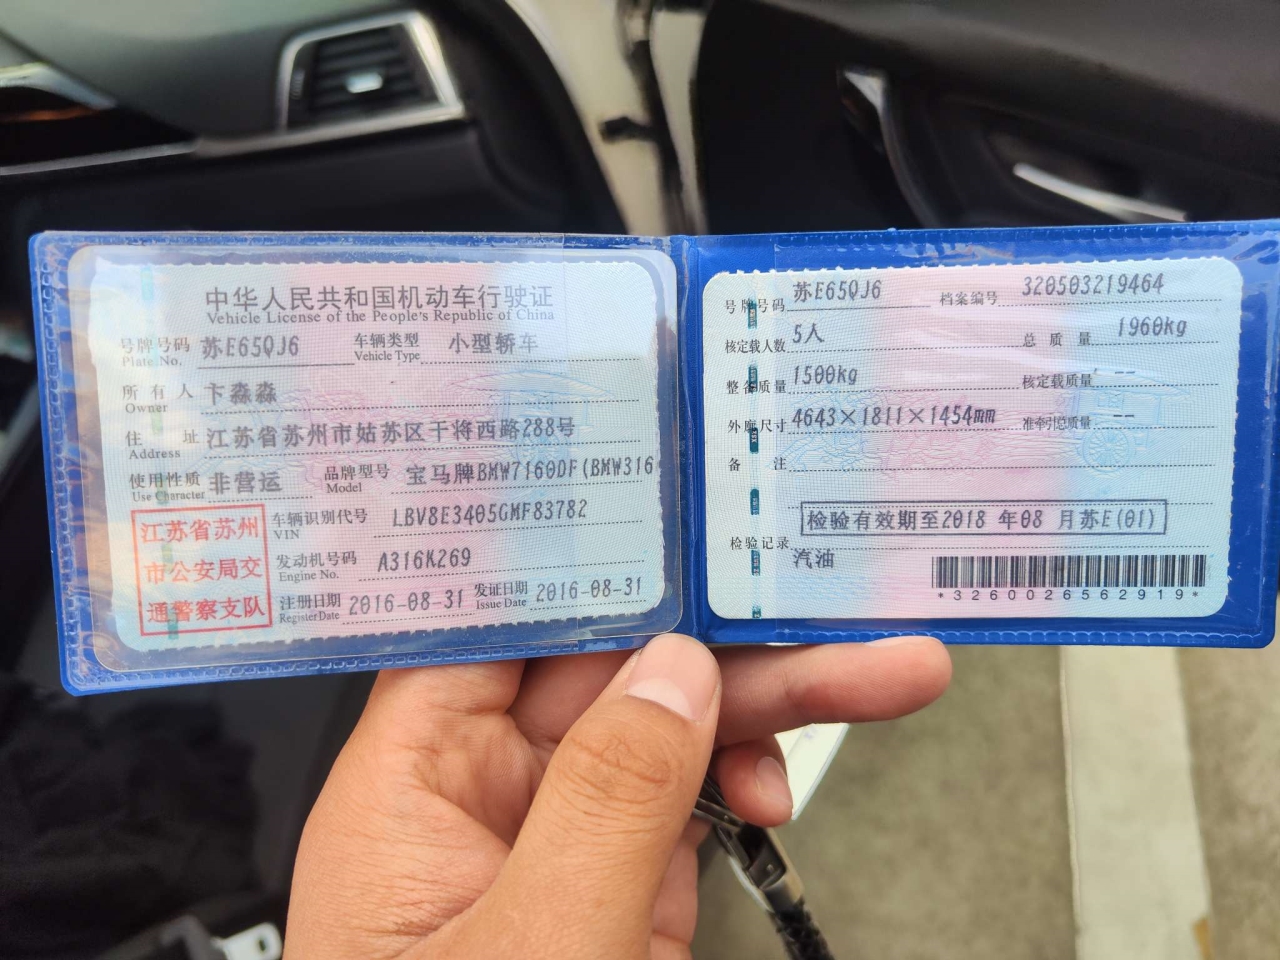 中华人民共和国机动车行驶证
Vehicle License of the People's Republic of China
号牌号码 苏E65QJ6 车辆类型 小型轿车
Plate No. Vehicle Type
所有人 卞淼淼
Owner
住址 江苏省苏州市姑苏区干将西路288号
Address
使用性质 非营运 品牌型号 宝马牌BMW7160DF(BMW316
Use Character Model
江苏省苏州
市公安局交
通警察支队
车辆识别代号 LBV8E3405GMF83782
VIN
发动机号码 A316K269
Engine No.
注册日期 2016-08-31 发证日期 2016-08-31
Register Date Issue Date
号牌号码 苏E65QJ6 档案编号 320503219464
核定载人数 5人 总质量 1960kg
整备质量 1500kg 核定载质量 --
外廓尺寸 4643×1811×1454mm 准牵引总质量 --
备注
检验有效期至2018 年08 月苏E(01)
检验记录 汽油
*3260026562919*